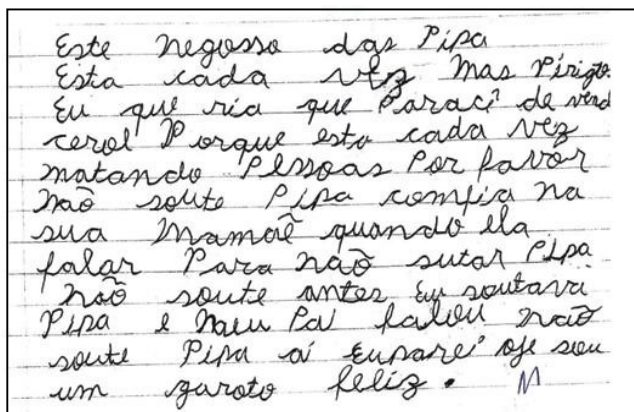 Este negosso das Pipa
Esta cada vez mas Pirigto.
Eu que ria que Paraci de vend
cerol Porque esta cada vez
matando Pessoas Por favor
não soute Pipa comfia na
sua Mamãe quando ela
falar Para não sutar Pipa
não soute antes eu soutava
Pipa e meu Pai falou não
soute Pipa aí euparei oje sou
um garoto feliz.